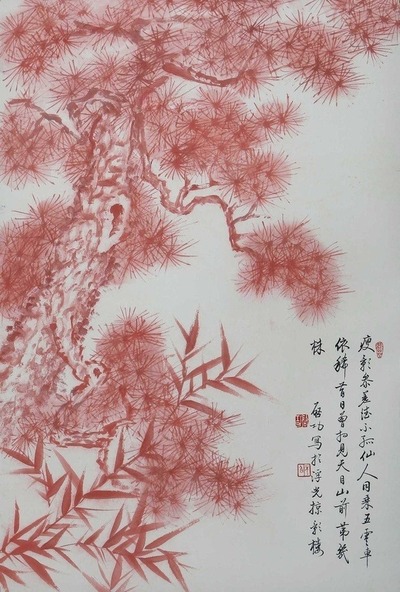 瘦影參差不孤仙人日五雲車
依稀昔日曾相見天目山前第幾
株
啟功寫於浮光掠影樓